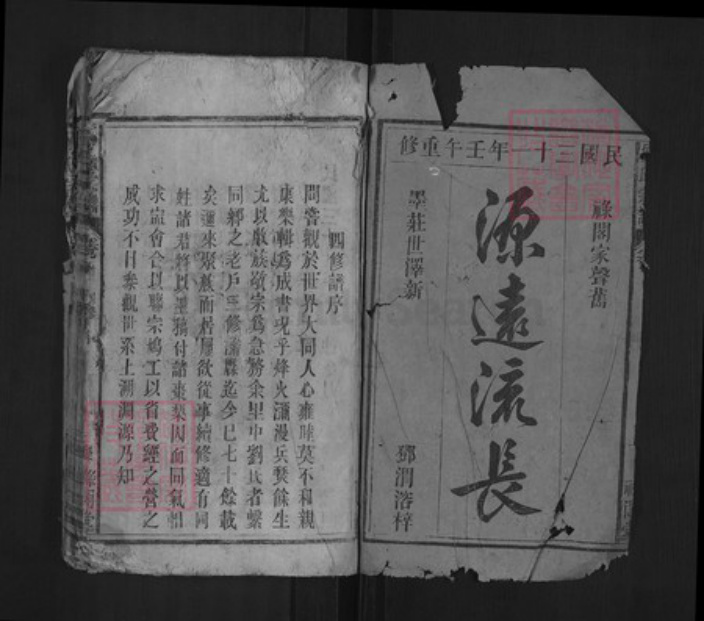 民國三十一年壬午重修
祿閣家聲舊
源遠流長
墨莊世澤新
鄧渭浯梓
四修譜序
問嘗觀於世界大同人心雍睦莫不和親
康樂輯爲成書況乎烽火瀰漫兵燹餘生
尤以敬族敬宗爲急務余里中劉氏者繫
同鄉之老戶三修譜縣迄今已七十餘載
矣邇來聚族而居屢欲從事續修適有同
姓諸君將以墨稿付諸棗梨因而同氣相
求詣會合以聯宗鳩工以省費經之營之
成功不日參觀世系上溯淵源乃知